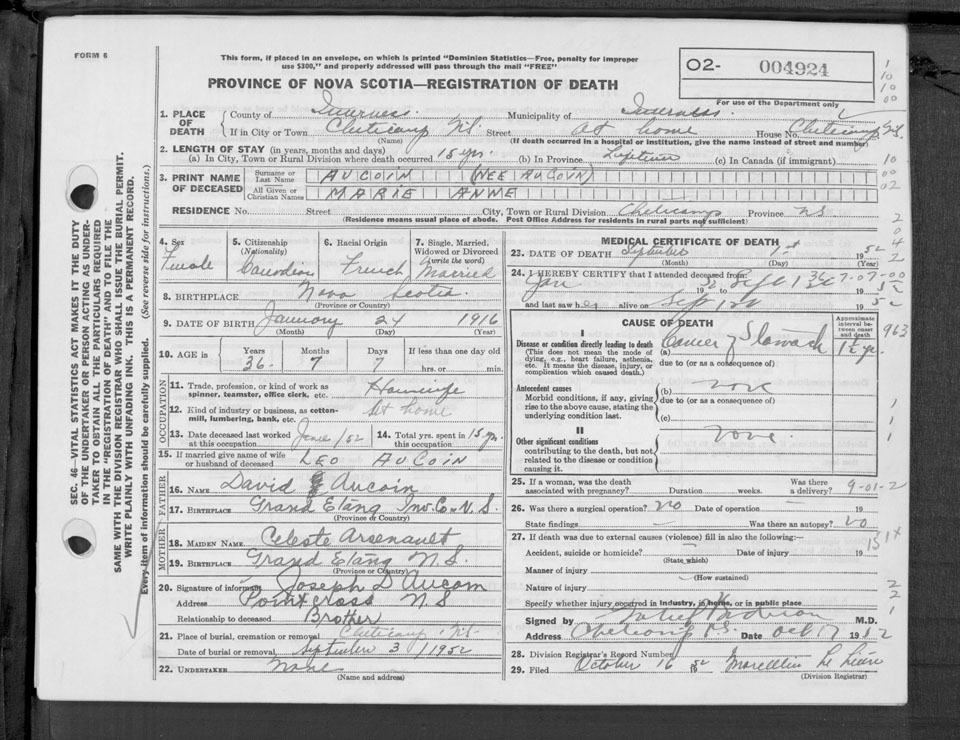 FORM 6
This form, if placed in an envelope, on which is printed "Dominion Statistics—Free, penalty for improper
use $300," and properly addressed will pass through the mail "FREE"
PROVINCE OF NOVA SCOTIA—REGISTRATION OF DEATH
O2- 004924
For use of the Department only
1. PLACE OF DEATH
County of Inverness Municipality of Inverness
If in City or Town Cheticamp N.S. Street At home House No. Cheticamp N.S.
(Name) (If death occurred in a hospital or institution, give the name instead of street and number)
2. LENGTH OF STAY (in years, months and days)
(a) In City, Town or Rural Division where death occurred 15 yrs. (b) In Province Lifetime (c) In Canada (if immigrant)
3. PRINT NAME OF DECEASED
Surname or Last Name AUCOIN (NEE AUCOIN)
All Given or Christian Names MARIE ANNE
RESIDENCE No. Street City, Town or Rural Division Cheticamp Province NS
(Residence means usual place of abode. Post Office Address for residents in rural parts not sufficient)
4. Sex Female
5. Citizenship (Nationality) Canadian
6. Racial Origin French
7. Single, Married, Widowed or Divorced (write the word) Married
8. BIRTHPLACE Nova Scotia
(Province or Country)
9. DATE OF BIRTH January 24 1916
(Month) (Day) (Year)
10. AGE in Years 36 Months 7 Days 7 If less than one day old hrs. or min.
OCCUPATION
11. Trade, profession, or kind of work as spinner, teamster, office clerk, etc. Housewife
12. Kind of industry or business, as cotton-mill, lumbering, bank, etc. At home
13. Date deceased last worked at this occupation June/52 14. Total yrs. spent in this occupation 15 yrs.
15. If married give name of wife or husband of deceased LEO AUCOIN
FATHER
16. NAME David Aucoin
17. BIRTHPLACE Grand Etang Inv. Co. N.S.
(Province or Country)
MOTHER
18. MAIDEN NAME Celeste Arsenault
19. BIRTHPLACE Grand Etang N.S.
(Province or Country)
20. Signature of informant Joseph D Aucoin
Address Point cross N S
Relationship to deceased Brother
21. Place of burial, cremation or removal Cheticamp N.S.
Date of burial or removal September 3 / 1952
22. UNDERTAKER None
(Name and address)
MEDICAL CERTIFICATE OF DEATH
23. DATE OF DEATH September 1st 1952
(Month) (Day)
24. I HEREBY CERTIFY that I attended deceased from
Jan 1952 to Sept 1st 1952
and last saw her alive on Sept 1st 1952
CAUSE OF DEATH
Approximate interval between onset and death
I
Disease or condition directly leading to death
(This does not mean the mode of dying, e.g., heart failure, asthenia, etc. It means the disease, injury, or complication which caused death.)
Cancer of Stomach 1½ yr.
due to (or as a consequence of)
Antecedent causes
Morbid conditions, if any, giving rise to the above cause, stating the underlying condition last.
(b) none
due to (or as a consequence of)
(c)
II
Other significant conditions
contributing to the death, but not related to the disease or condition causing it.
none.
25. If a woman, was the death associated with pregnancy? Duration weeks. Was there a delivery? 9-01-2
26. Was there a surgical operation? No Date of operation 19
State findings Was there an autopsy? No
27. If death was due to external causes (violence) fill in also the following:—
Accident, suicide or homicide? Date of injury 19
(State which)
Manner of injury
(How sustained)
Nature of injury
Specify whether injury occurred in industry, in home, or in public place
Signed by M.D.
Address Cheticamp N.S. Date Oct 17 1952
28. Division Registrar's Record Number
29. Filed October 16 1952
(Division Registrar)
963
SEC. 46—VITAL STATISTICS ACT MAKES IT THE DUTY
OF THE UNDERTAKER OR PERSON ACTING AS UNDER-
TAKER TO OBTAIN ALL THE PARTICULARS REQUIRED
IN THE "REGISTRATION OF DEATH" AND TO FILE THE
SAME WITH THE DIVISION REGISTRAR WHO SHALL ISSUE THE BURIAL PERMIT.
WRITE PLAINLY WITH UNFADING INK. THIS IS A PERMANENT RECORD.
Every item of information should be carefully supplied. (See reverse side for instructions.)